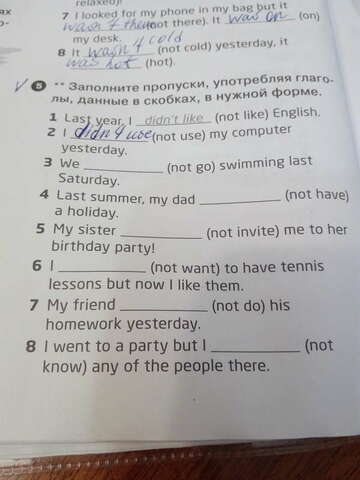 relaxed)!
7 I looked for my phone in my bag but it
wasn't there (not there). It was on (on)
my desk.
8 It wasn't cold (not cold) yesterday, it
was hot (hot).
5 ** Заполните пропуски, употребляя глаго-
лы, данные в скобках, в нужной форме.
1 Last year, I didn't like (not like) English.
2 I didn't use (not use) my computer
yesterday.
3 We ________ (not go) swimming last
Saturday.
4 Last summer, my dad ________ (not have)
a holiday.
5 My sister ________ (not invite) me to her
birthday party!
6 I ________ (not want) to have tennis
lessons but now I like them.
7 My friend ________ (not do) his
homework yesterday.
8 I went to a party but I ________ (not
know) any of the people there.